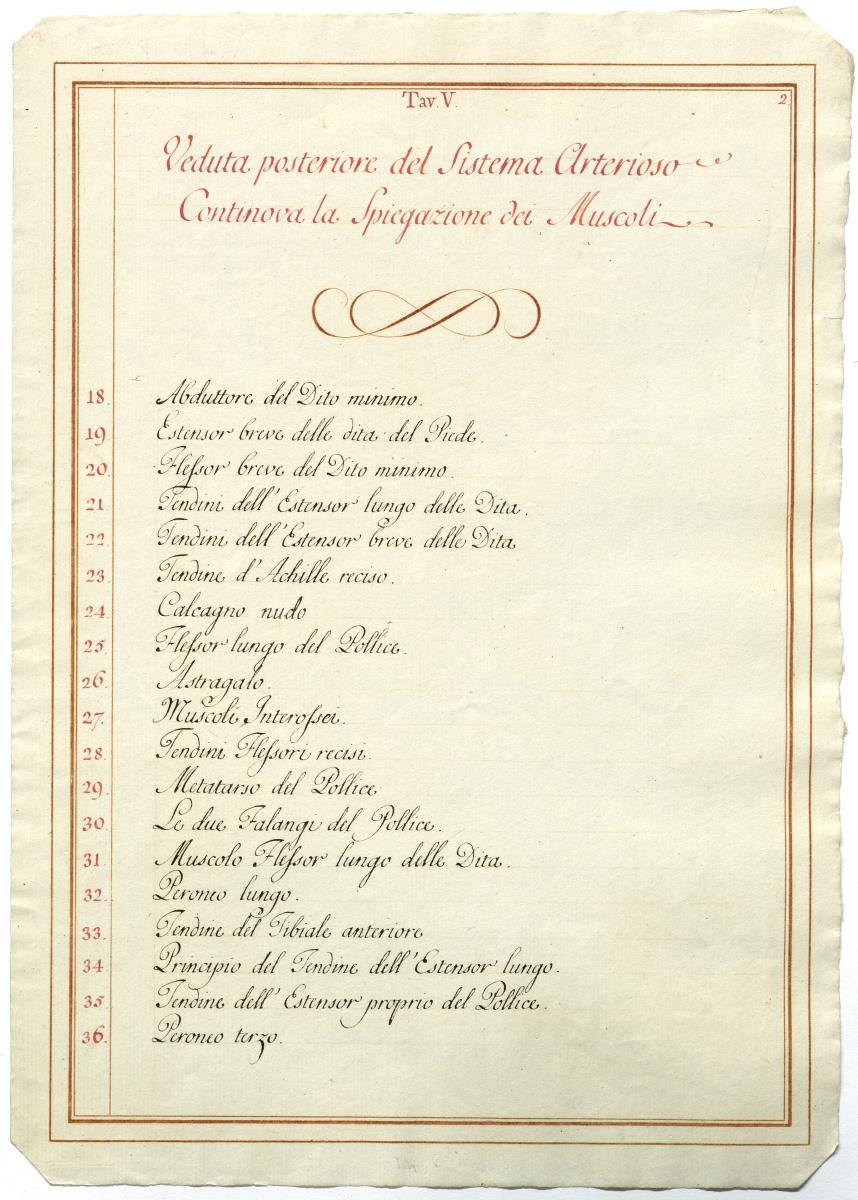 Tav. V.
2.
Veduta posteriore del Sistema Arterioso
Continova la Spiegazione dei Muscoli
18. Abduttore del Dito minimo.
19. Estensor breve delle dita del Piede.
20. Flessor breve del Dito minimo.
21. Tendini dell'Estensor lungo delle Dita.
22. Tendini dell'Estensor breve delle Dita
23. Tendine d'Achille reciso.
24. Calcagno nudo
25. Flessor lungo del Pollice.
26. Astragalo.
27. Muscoli Interossei.
28. Tendini Flessori recisi.
29. Metatarso del Pollice
30. Le due Falangi del Pollice.
31. Muscolo Flessor lungo delle Dita.
32. Peroneo lungo.
33. Tendine del Tibiale anteriore
34. Principio del Tendine dell'Estensor lungo.
35. Tendine dell'Estensor proprio del Pollice.
36. Peroneo terzo.